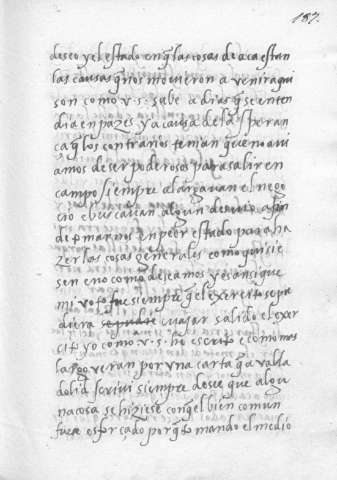 187.
deseo y el estado en q̃ las cosas de aca estan
las causas q̃ nos movieron a venir aqui
son como v. s. sabe a dias q̃ se enten
dia en pazes y a causa de la speran
ça q̃ los contrarios tenian que no avi
amos de ser poderosos para salir en
campo siempre alargavan el nego
cio e buscavan algun desvio a fin
de para ha
zer las cosas generales como quisie
sen e no como deseamos y esansi que
mi voto fue siempre q̃ el exercito se pa
diera viajar salido el exer
cito yo como v. s. he escrito e como mas
largo veran por una carta q̃ a valla
dolid scrivi siempre desee que algu
na cosa se hiziese con q̃ el bien comun
fuese esforçado por q̃ tomando el medio